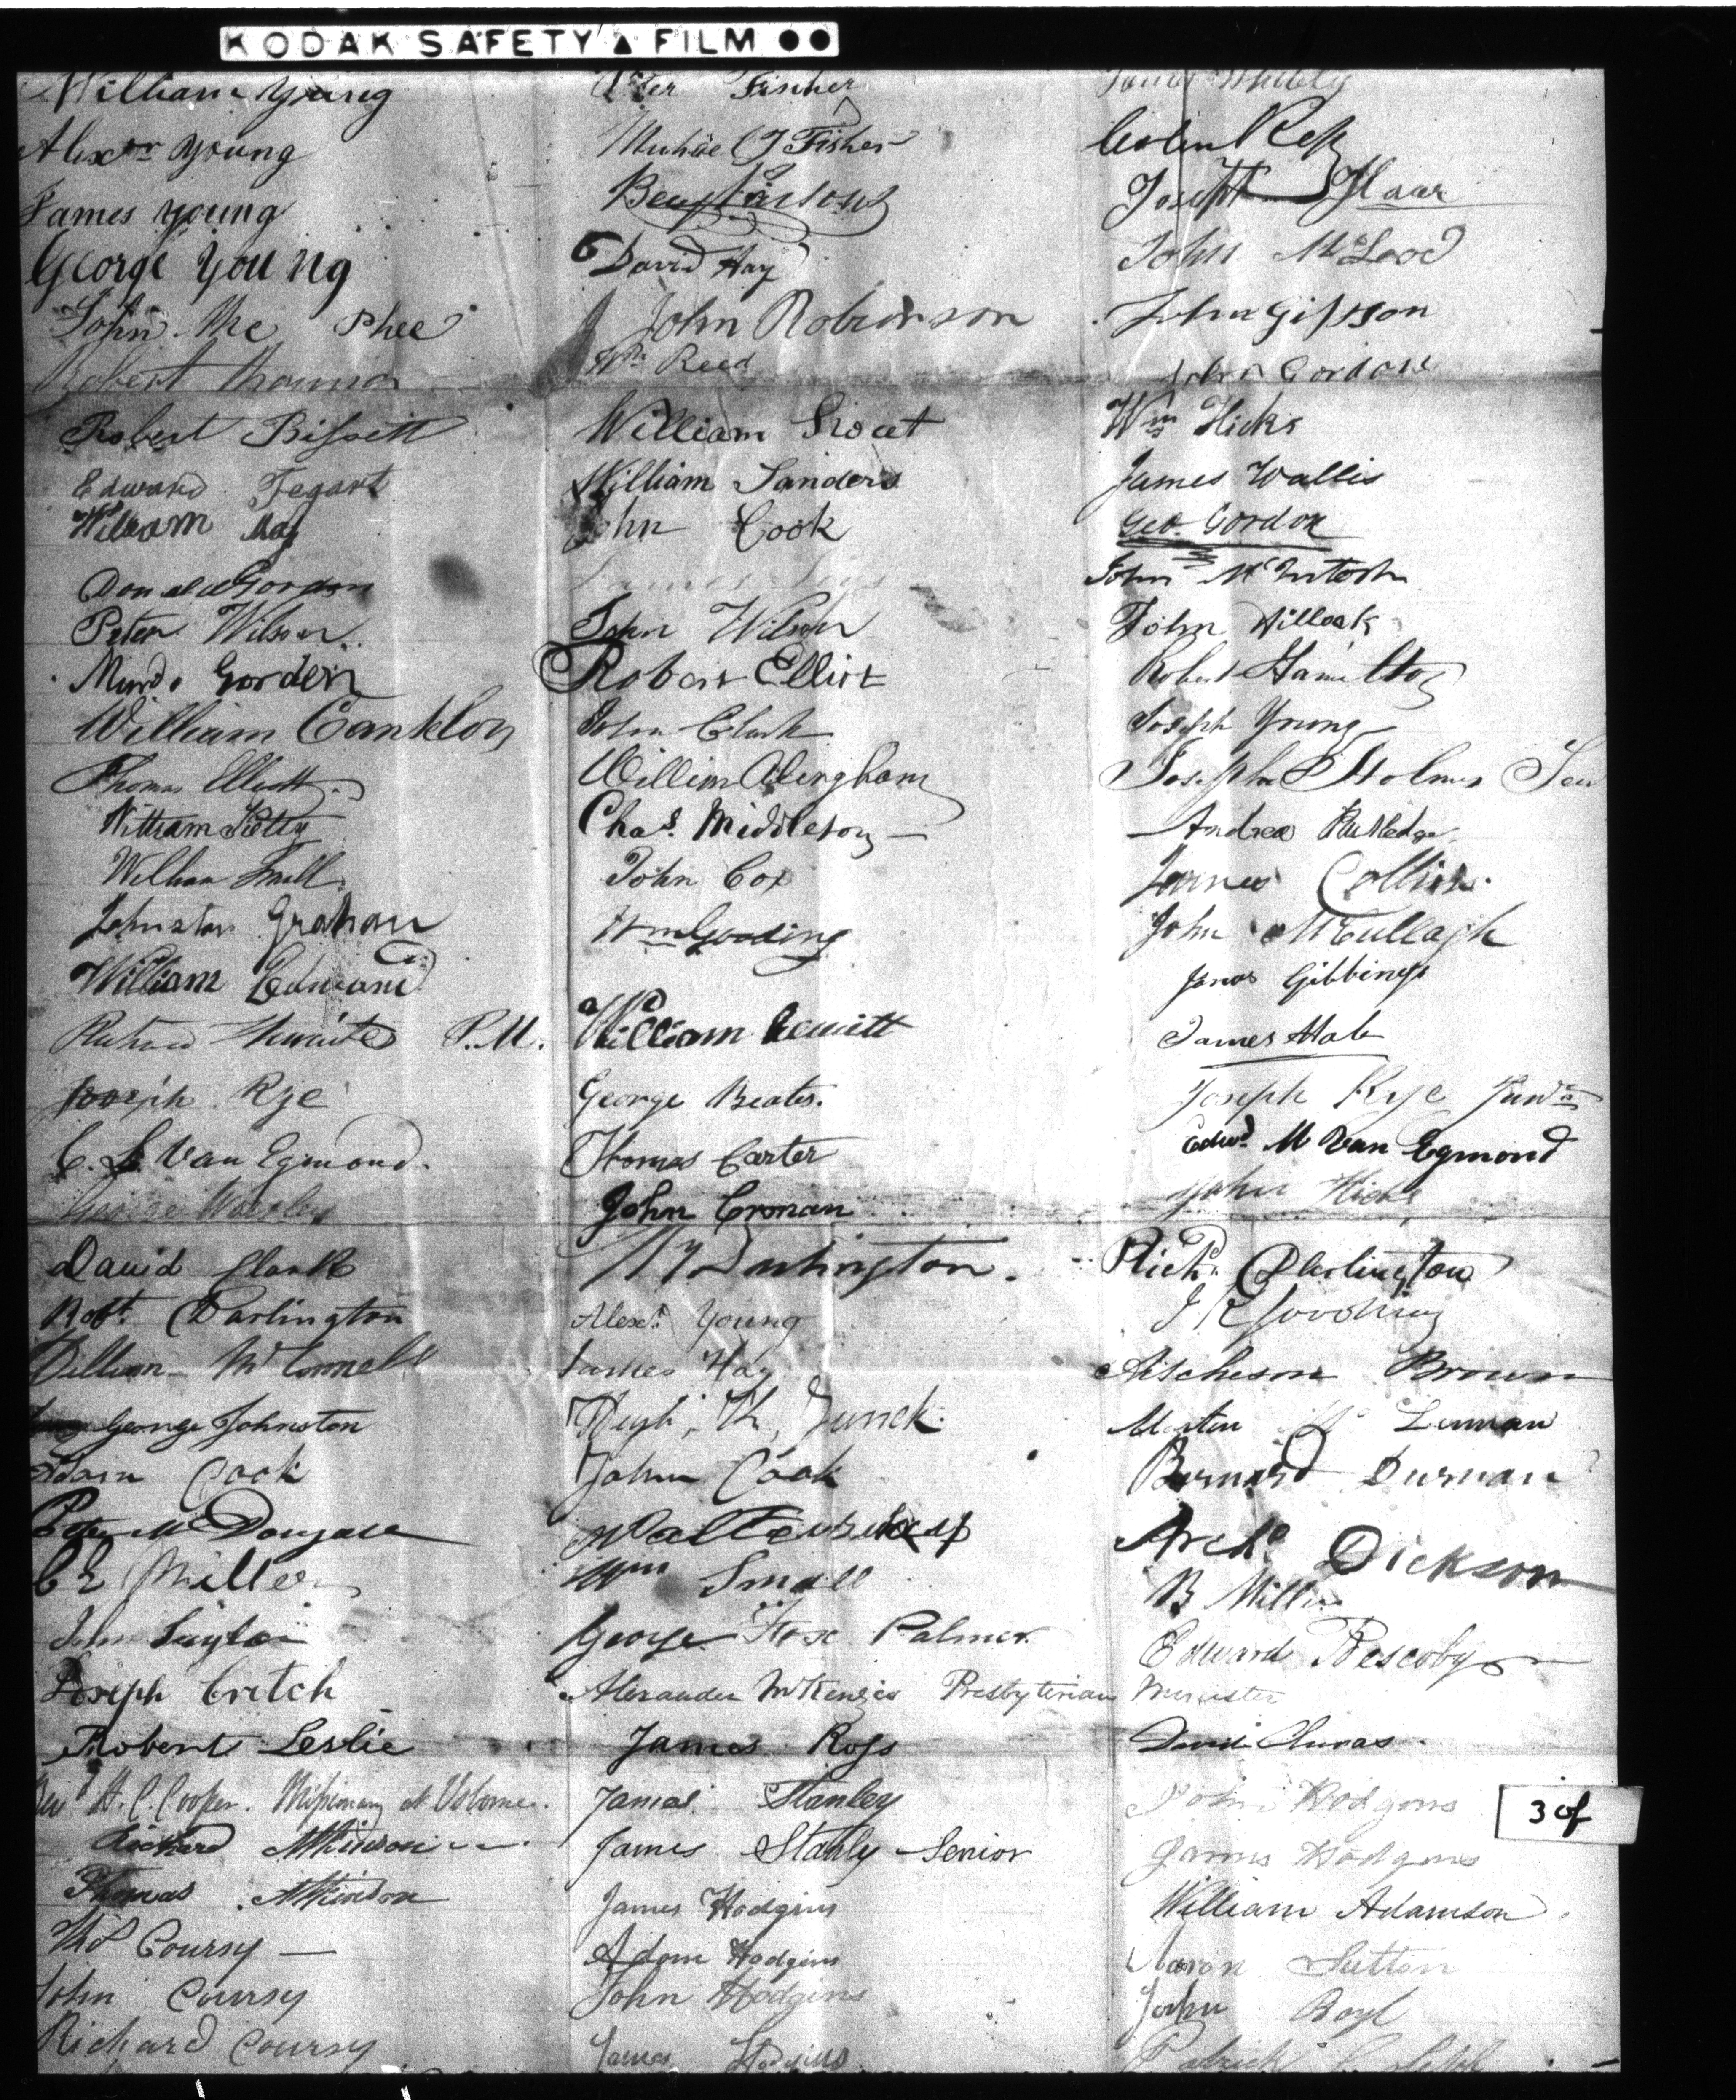 KODAK SAFETY FILM
William Young
Alexr Young
James young
George Young
John Mc Phee
Robert
Robert Bissett
Edward Tegart
William May
Donald Gordon
Peter Wilson
Murdo Gorden
William Canklon
Thomas Elliott
William
William Snell
Johnston Graham
William Edward
Richard Thwaites P.M.
Joseph Rye
C. L. Van Egmond.
George Walsley
David Clark
Robt. Darlington
William McConnell
George Johnston
Adam Cook
Peter McDougall
C E Miller
John Taylor
Joseph Critch
Robert Leslie
Revd H. C. Cooper. Missionary at Usborne.
Richard Atkinson
Thomas Atkinson
Thos Coursy
John Coursy
Richard Coursy
Peter Fischer
Michael G Fisher
Benj Parsons
6 David Hay
John Robinson
Wm. Reed
William Rout
William Sanders
John Cook
James
John Wilson
Robert Elliot
John Clark
William Bingham
Chas. Middleton
John Cox
Wm Gooding
William Hewitt
George Beates.
Thomas Carter
John Cronan
W Darlington.
Alexr. Young
James Hay
Hugh, Junck.
John Cook
Walter
Wm Small
George Fox Palmer.
Alexander McKenzie Presbyterian Minister
James Ross
James Stanley
James Stanly Senior
James Hodgins
Adam Hodgins
John Hodgins
James Hodgins
James Whitely
Colin Ross
Joseph Haar
John McLeod
John Gibson
John Gordon
Wm Hicks
James Wallis
Geo. Gordon
John McIntosh
John Hilloak
Robert Hamilton
Joseph Young
Joseph Holmes Sen
Andrew Rutledge
James Collins.
John McCullagh
James Gibbings
James Hale
Joseph Rye Junr
Edwd. M Van Egmond
John Hicks
Richd. Darlington
J K Gooding
Aitcheson Brown
Martin Mc Lennan
Bernard Durnan
Archd Dickson
B Miller
Edward Rescoby
David Clunas.
John Hodgins
3 of
James Hodgins
William Adamson.
Aaron Sutton
John Boyl
Patrick